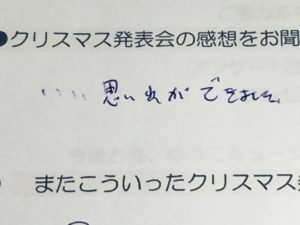 ●クリスマス発表会の感想をお聞
いい思い出ができました。
またこういったクリスマス